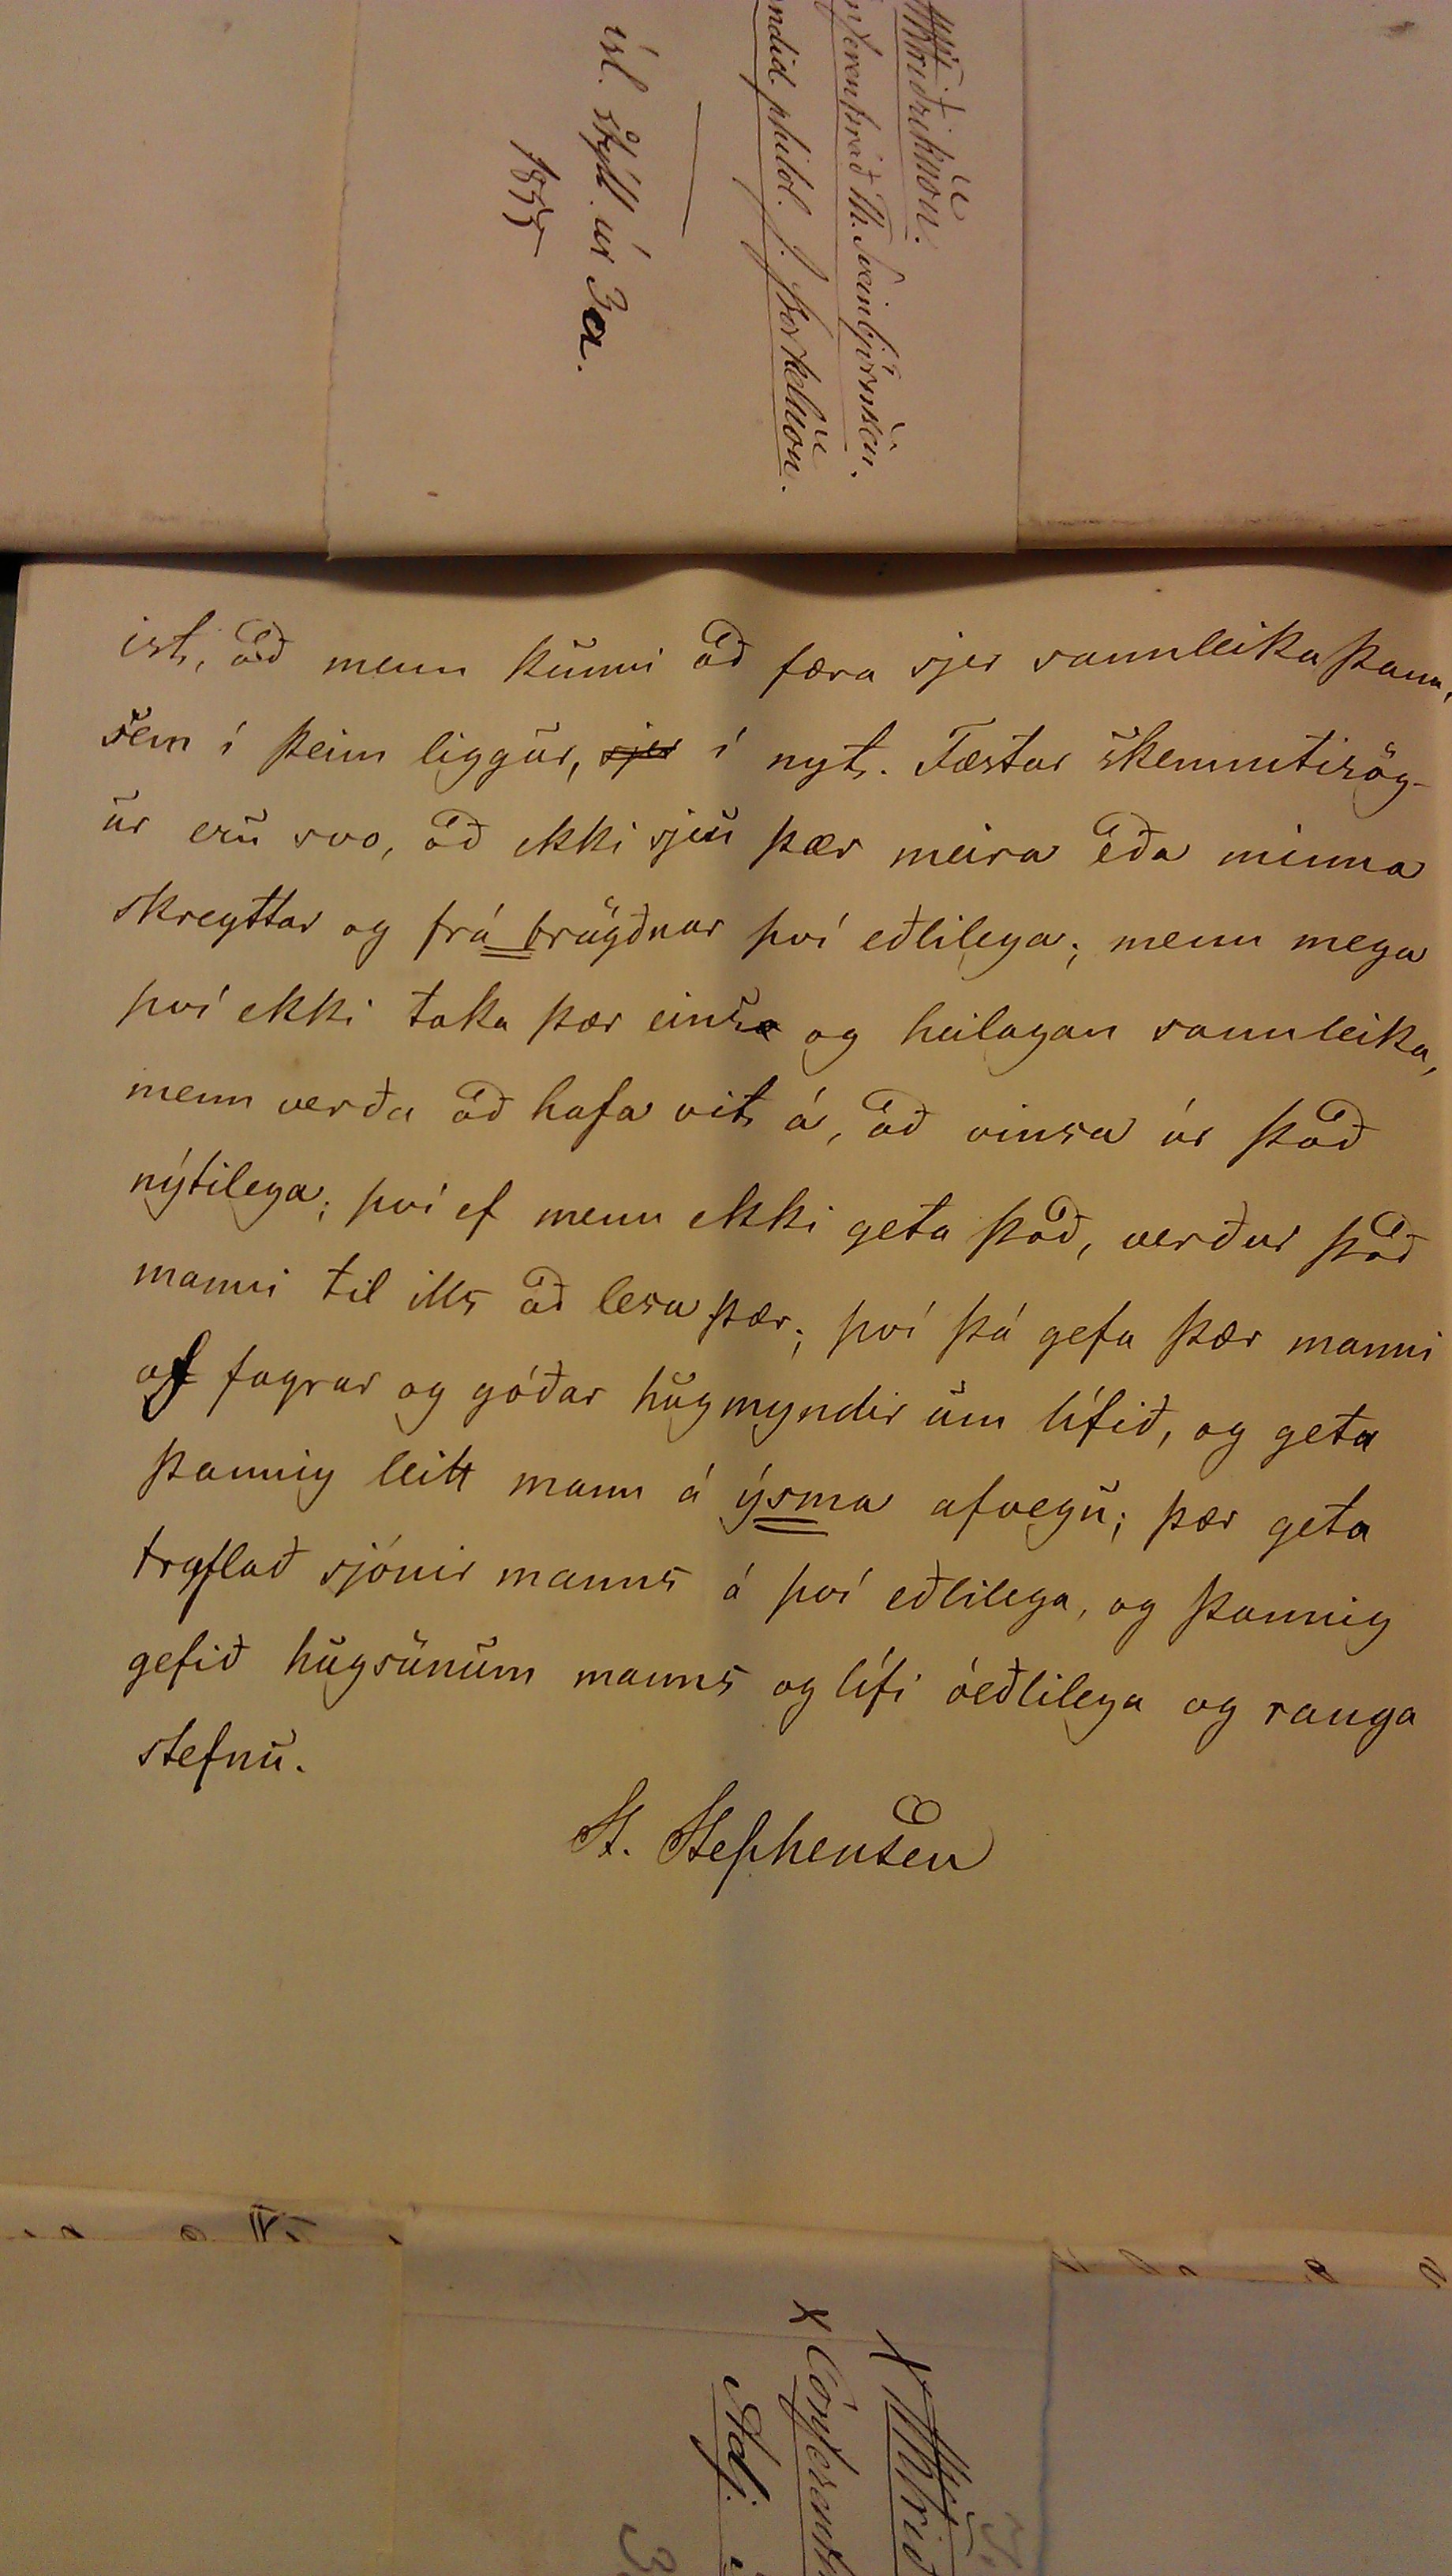 H. Kr. Friðriksson.
Th. Sveinbjörnsson.
philol. J. Þorkelsson.
ísl. stýll. úr 3a.
1855
ist, að menn kunni að færa sjer sannleika þann,
sem í þeim liggur, sjer í nyt. Fæstar skemmtisög-
ur eru svo, að ekki sjeu þær meira eða minna
skreyttar og frá brugðnar því eðlilega; menn mega
því ekki taka þær eins og heilagan sannleika,
menn verða að hafa vit á, að vinsa úr það
nýtilega; því ef menn ekki geta það, verður það
manni til ills að lesa þær; því þá gefa þær manni
of fagrar og góðar hugmyndir um lífið, og geta
þannig leitt mann á ýsma afvegu; þær geta
truflað sjónir manns á því eðlilega, og þannig
gefið hugsunum manns og lífi óeðlilega og ranga
stefnu.
St. Stephensen
x
x
Adj.